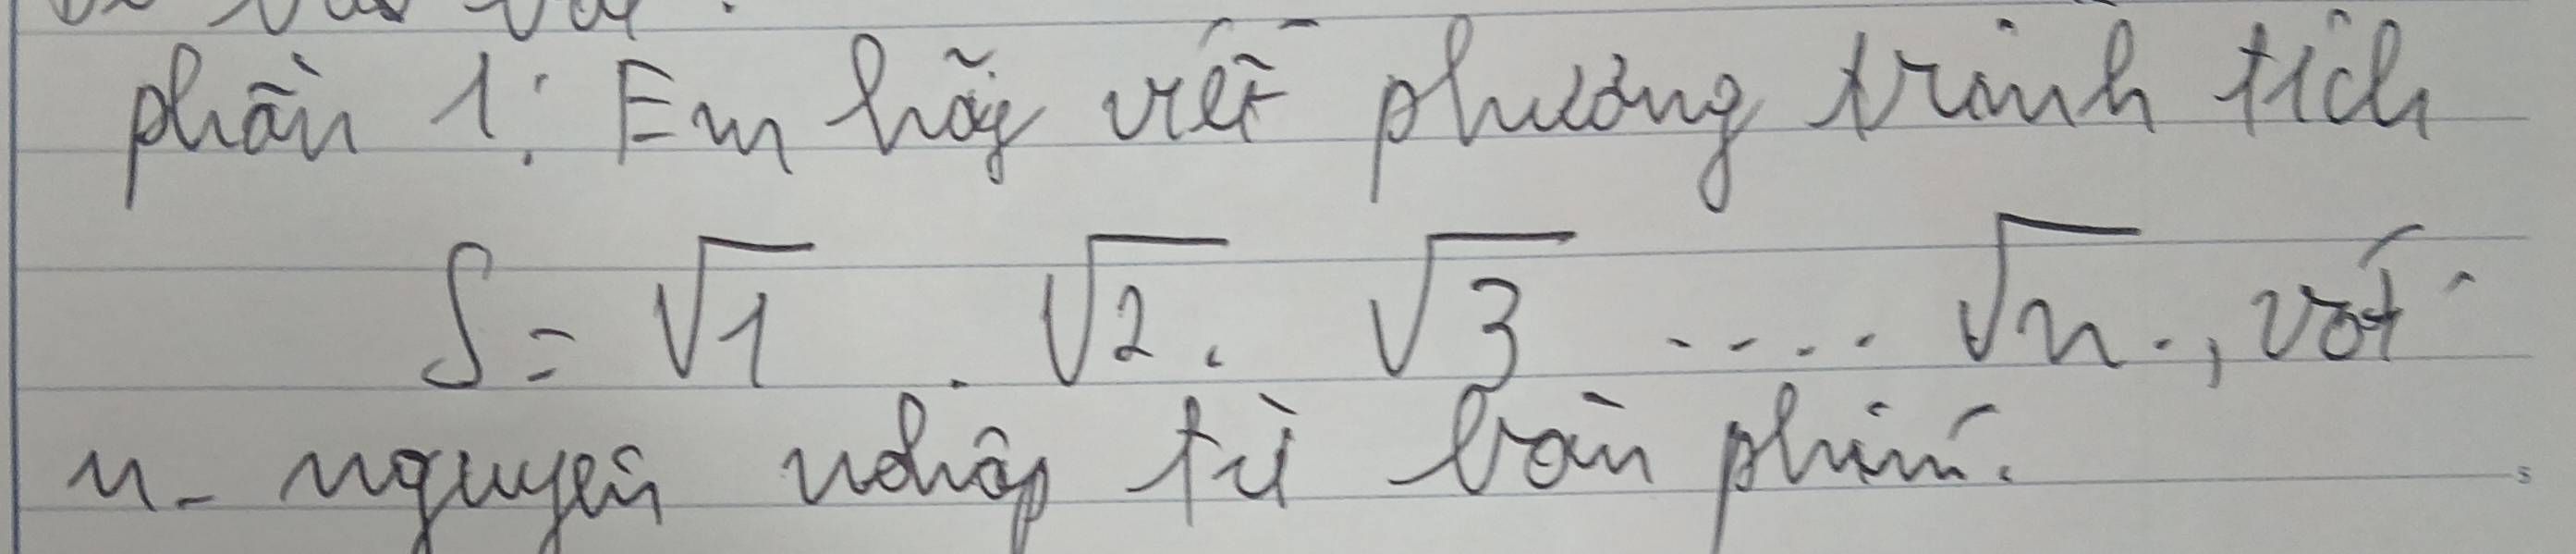 phần 1: Em hãy viết phương trình tích
S = √1 . √2 . √3 .... √n . , với
n - nguyên nhập từ bàn phím.